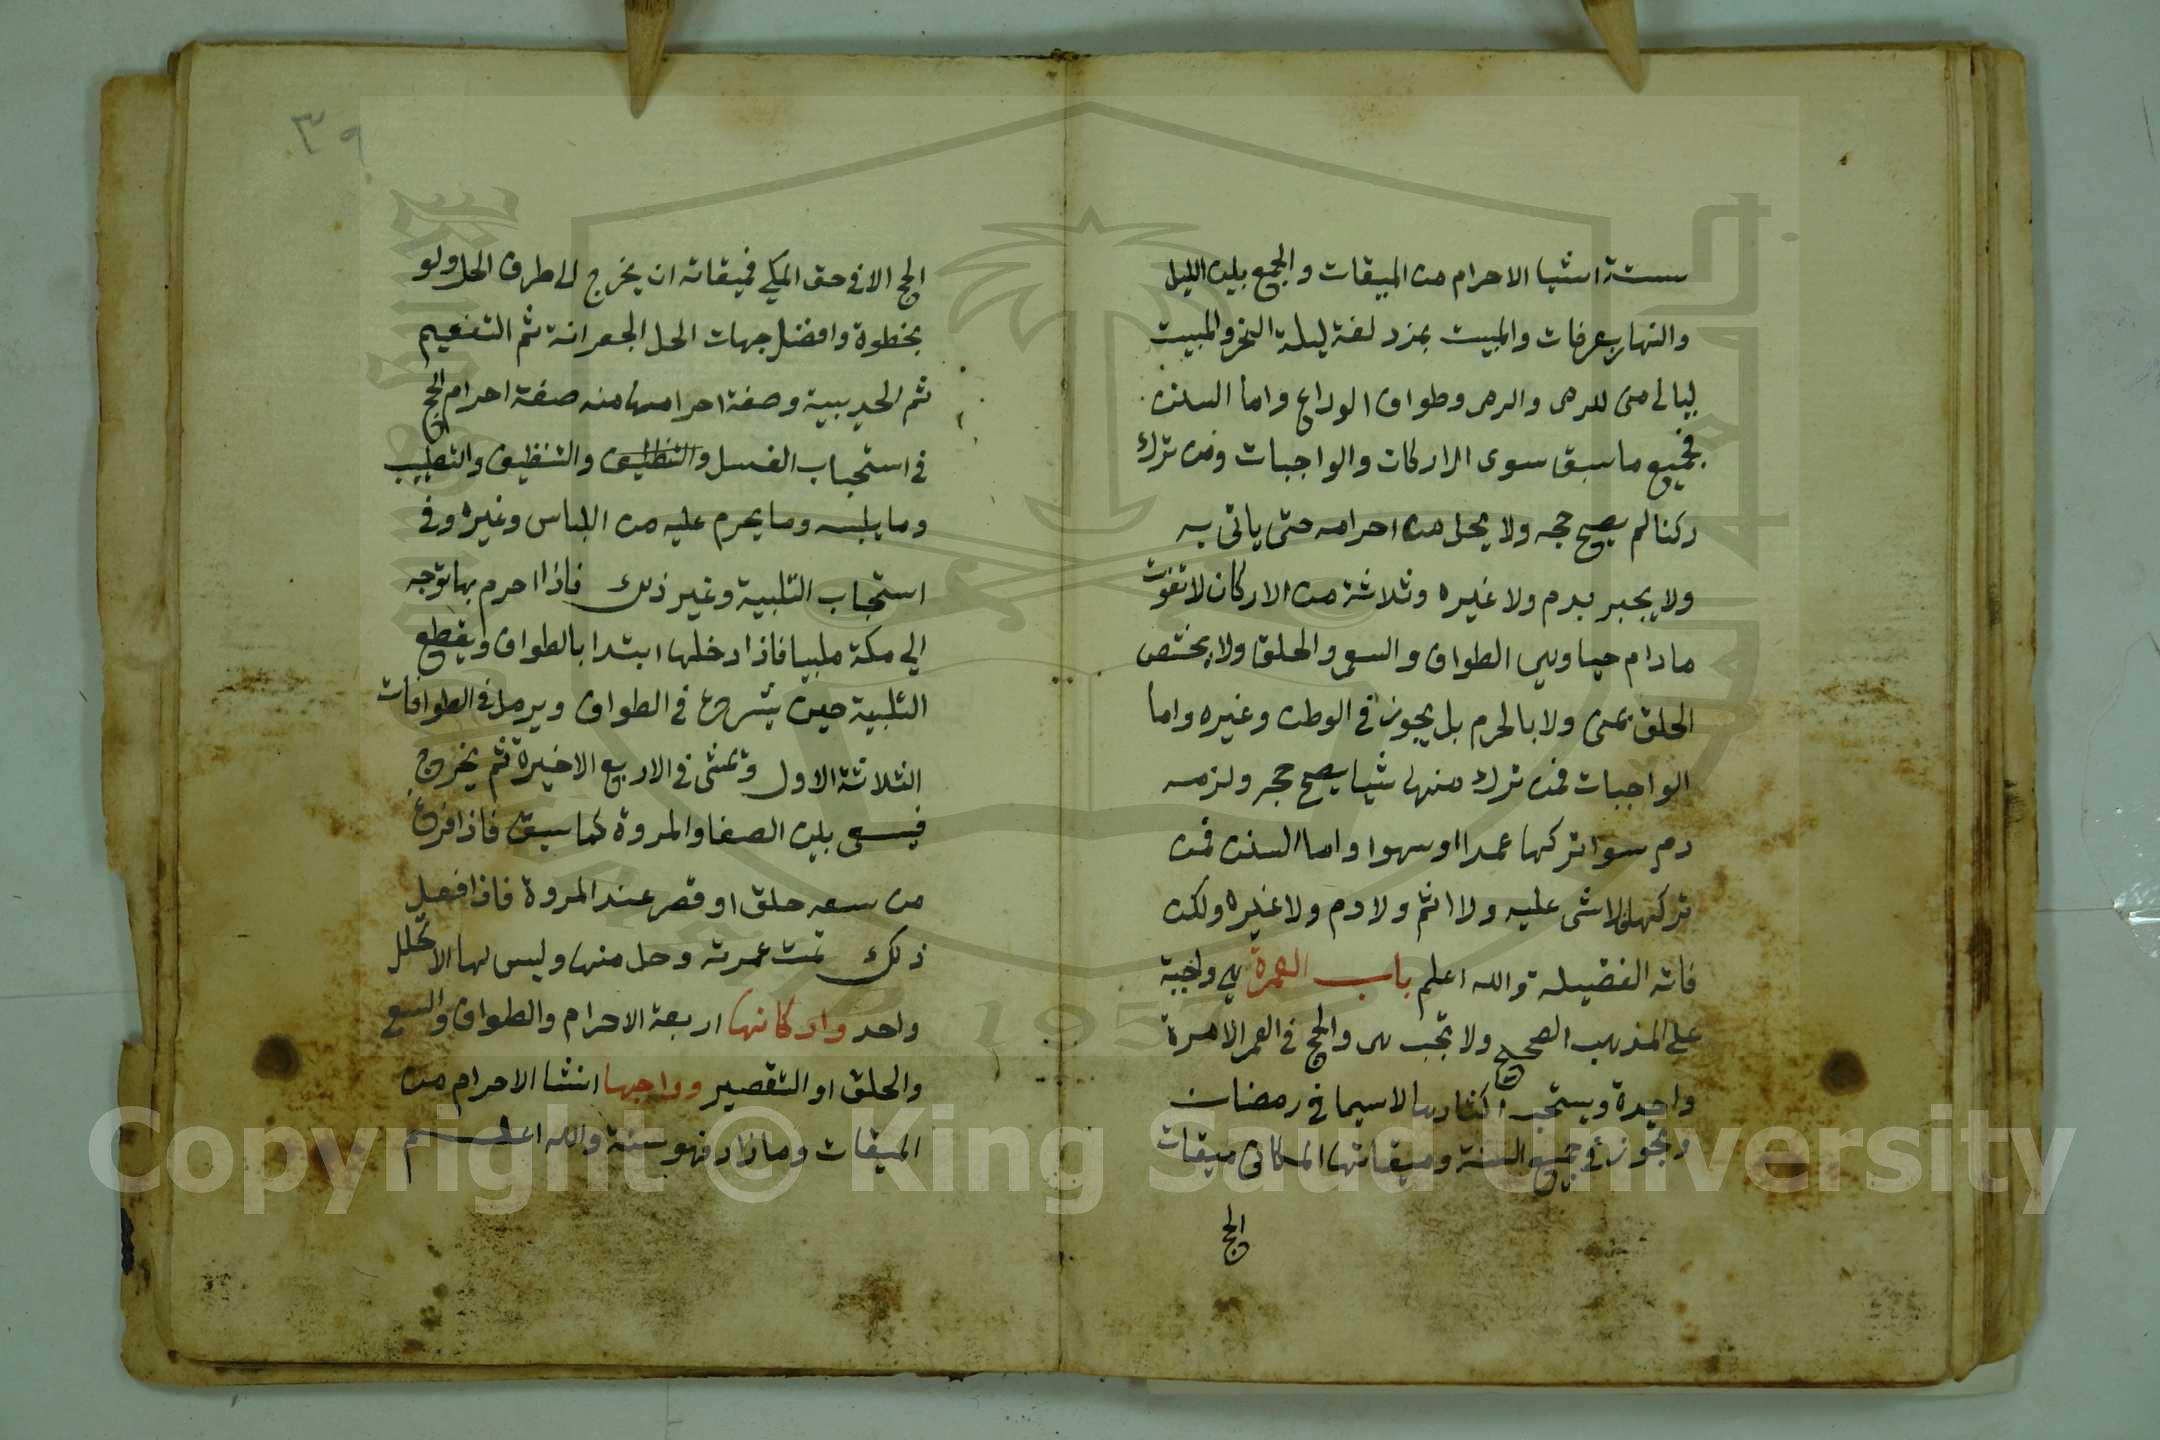 ستة اشيا الاحرام من الميقات والجمع بين الليل
والنهار بعرفات والمبيت بمزدلفة ليلة النحر والمبيت
ليالي منى للرمى والرمى وطواف الوداع واما السنن
فجميع ما سبق سوى الاركان والواجبات ومن ترك
ركنا لم يصح حجه ولا يحل من احرامه حتى ياتى به
ولا يجبر بدم ولا غيره وثلاثة من الاركان لا تفوت
مادام حيا وهي الطواف والسعى والحلق ولا يختص
الحلق بمنى ولا بالحرم بل يجوز في الوطن وغيره واما
الواجبات فمن ترك منها شيا يصح حجه ولزمه
دم سوا تركها عمدا او سهوا واما السنن فمن
تركها لا شى عليه ولا اثم ولا دم ولا غيره ولكن
فاته الفضيلة والله اعلم باب العمرة هي واجبة
على المذهب الصحيح ولا تجب هى والحج في العمر الا مرة
واحدة ويستحب اكثارها لا سيما في رمضان
وتجوز في جميع السنة وميقاتها المكانى ميقات
الحج
٣٩
الحج الا في حق المكي فميقاته ان يخرج الى طرف الحل ولو
بخطوة وافضل جهات الحل الجعرانة ثم التنعيم
ثم الحديبية وصفة احرامها منه صفة احرام الحج
في استحباب الغسل والتنظيف والتنظيف والتطيب
وما يلبسه وما يحرم عليه من اللباس وغيره وفى
استحباب التلبية وغير ذلك فاذا احرم بها توجه
الي مكة ملبيا فاذا دخلها ابتدا بالطواف ويقطع
التلبية حين يشروع في الطواف ويرمل في الطوافات
الثلاثة الاول ويمشى في الاربع الاخيرة ثم يخرج
فيسعى بين الصفا والمروة كما سبق فاذا فرغ
من سعيه حلق او قصر عند المروة فاذا فعل
ذلك تمت عمرته وحل منها وليس لها الا تحلل
واحد واركانها اربعة الاحرام والطواف والسعى
والحلق او التقصير وواجبها انشا الاحرام من
الميقات وما زاد فهو سنة والله اعلم
Copyright © King Saud University
1957